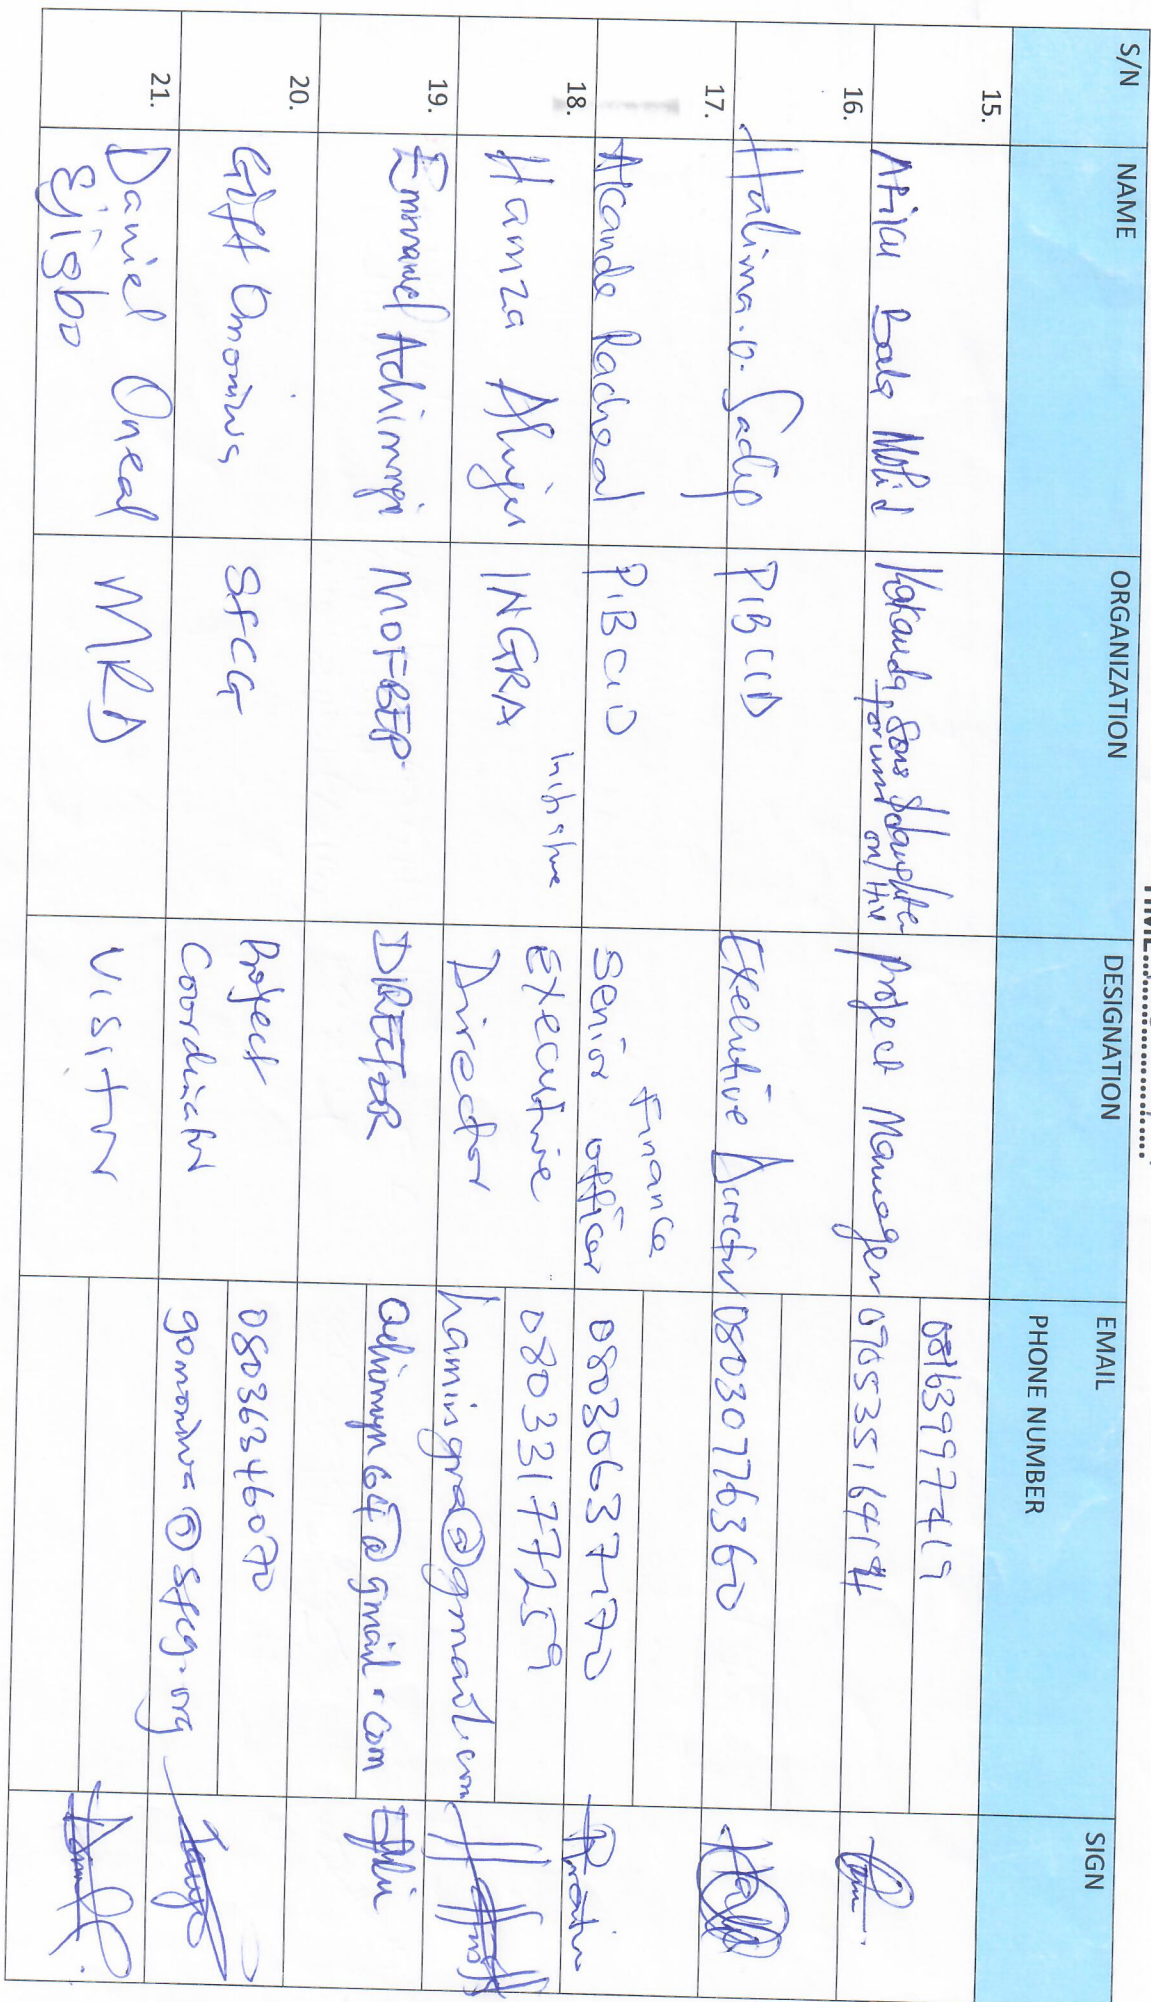 TIME
S/N NAME ORGANIZATION DESIGNATION EMAIL SIGN
PHONE NUMBER
15. Kakanda Sons & daughter Project Manager 08163997419
forum on HIV
16. Halima.O. Sadiq PIBCID Executive Director 08030776360
17. Racheal PIBCID Senior Finance officer 08030637170
18. Hamza Aliyu INGRA Initiative Executive Director 08033177259
hamingra@gmail.com
19. Emmanuel MOFBEP DIRECTOR @gmail.com
20. Gift Omoniwa SFCG Project Coordinator 08036346070
gomoniwa@sfcg.org
21. Daniel Oneal Ejigbo MRD Visitor